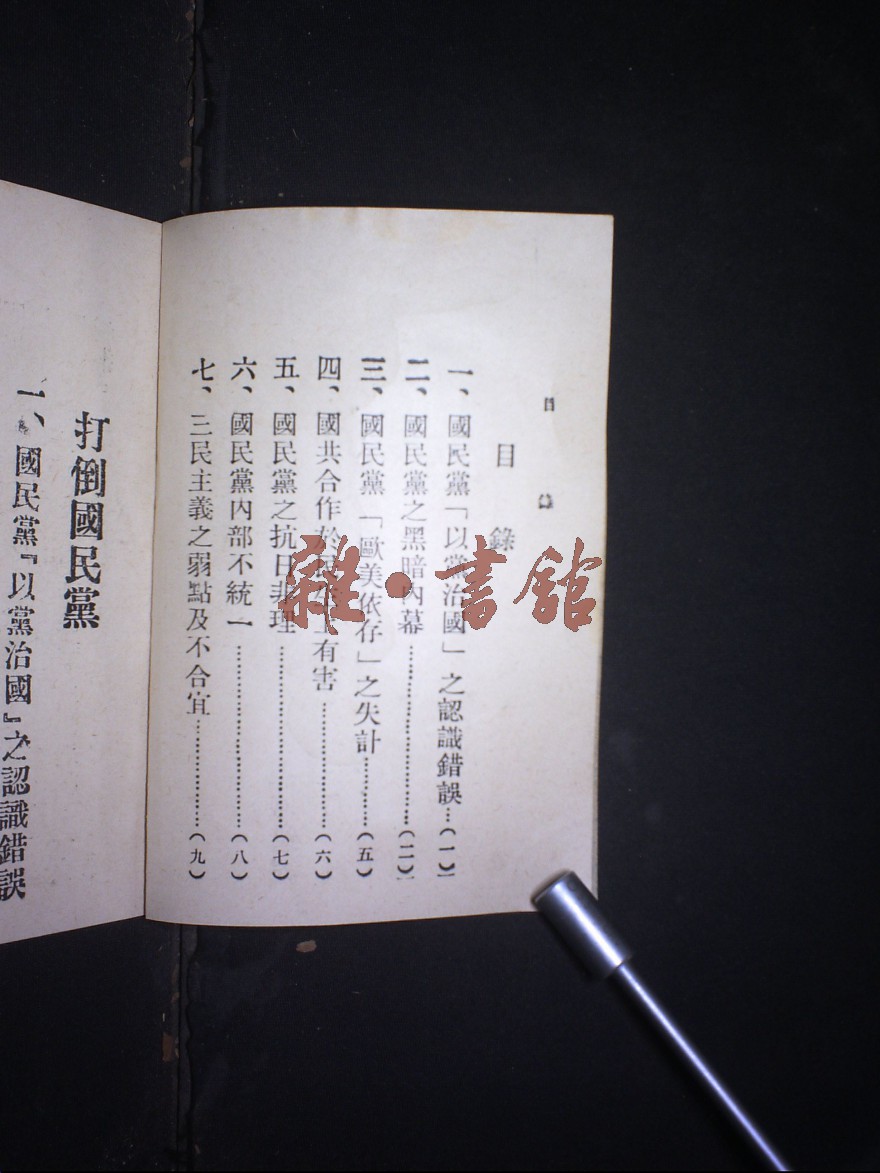 目錄
目錄
一、國民黨「以黨治國」之認識錯誤…(一)
二、國民黨之黑暗內幕…………………(二)
三、國民黨「歐美依存」之失計………(五)
四、國共合作於 有害……………(六)
五、國民黨之抗日非理…………………(七)
六、國民黨內部不統一…………………(八)
七、三民主義之弱點及不合宜…………(九)
打倒國民黨
一、國民黨『以黨治國』之認識錯誤
雜·書館